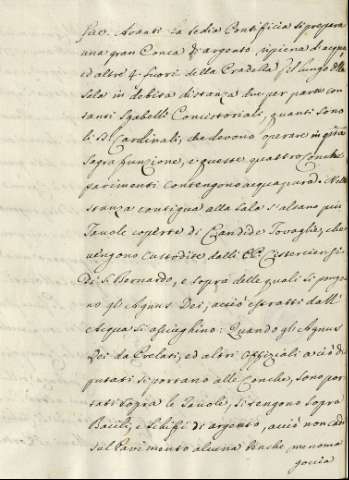 Pav. Avanti la sedia Pontificia si prepara
una gran Conca d'argento ripiena d'acqua,
ed altre 4. fuori della Pradella pel lungo della
Sala in debita distanza due per parte con
tanti Sgabelli Concistoriali, quanti sono
li SS. Cardinali, che devono operare in questa
Sagra funzione, e queste quattro Conche
parimenti contengono acqua pura. Nella
stanza contigua alla Sala s'alzano più
Tavole coperte di Candide Tovaglie, che
vengono custodite dalli PP. Cisterciensi
di S. Bernardo, e sopra delle quali si pongo
no gli Agnus Dei, acciò estratti dall'
Acqua si asciughino: Quando gli Agnus
Dei da Prelati, ed altri Offiziali a ciò de
putati si portano alle Conche, sono por
tati sopra le Tavole, si tengono sopra
Bacili, e Schifi di argento, acciò non cada
sul Pavimento alcuna benche menoma
goccia